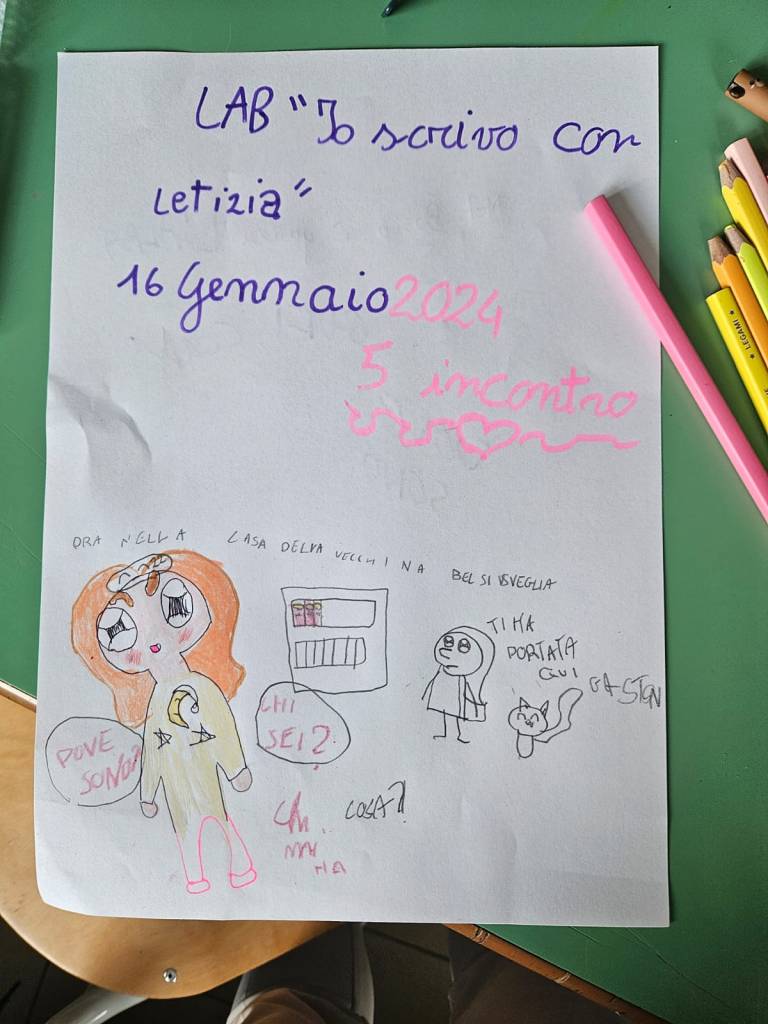 LAB "Io scrivo con
Letizia"
16 Gennaio 2024
5 incontro
ORA NELLA CASA DELLA VECCHINA BEL SI SVEGLIA
TI HA
PORTATA
QUI
GASTON
CHI
SEI?
DOVE
SONO?
COSA?
Chi
MI
HA
LEGAMI